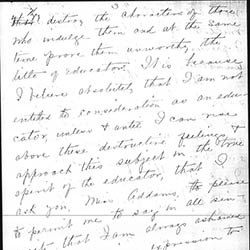 destroy the characters of those
who indulge them and at the same
time prove them unworthy the
title of educators. It is because
I believe absolutely that I am not
entitled to consideration as an edu-
cator, unless & until I can rise
above these destructive feelings &
approach this subject in the true
spirit of the educator, that I
ask you, Miss Addams, to please
to permit me to say in all sin-
that I am always ashamed
expression to